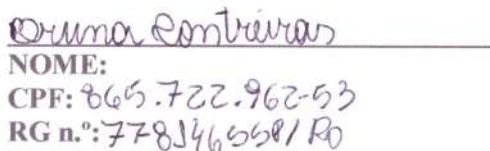 Bruna Contreiras
NOME:
CPF: 865.722.962-53
RG n.º: 778346558/RO